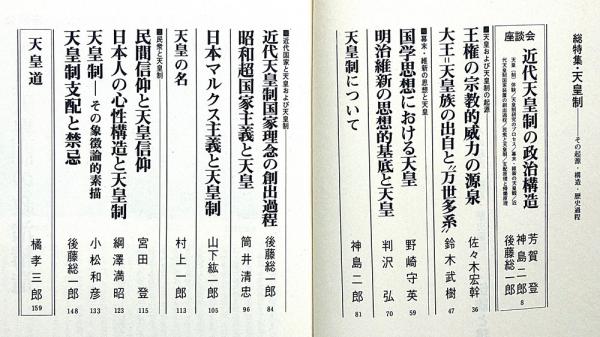 総特集・天皇制——その起源・構造・歴史過程
座談会
近代天皇制の政治構造
芳賀 登
神島二郎
後藤総一郎
8
■天皇および天皇制の起源
王権の宗教的威力の源泉 佐々木宏幹 36
大王=天皇族の出自と“万世多系” 鈴木武樹 47
■幕末・維新の思想と天皇
国学思想における天皇 野崎守英 59
明治維新の思想的基底と天皇 判沢 弘 70
天皇制について 神島二郎 81
■近代国家と天皇および天皇制
近代天皇制国家理念の創出過程 後藤総一郎 84
昭和超国家主義と天皇 筒井清忠 96
日本マルクス主義と天皇制 山下紘一郎 105
天皇の名 村上一郎 113
■民衆と天皇制
民間信仰と天皇信仰 宮田 登 115
日本人の心性構造と天皇制 綱澤満昭 123
天皇制——その象徴論的素描 小松和彦 133
天皇制支配と禁忌 後藤総一郎 148
天皇道 橘孝三郎 159